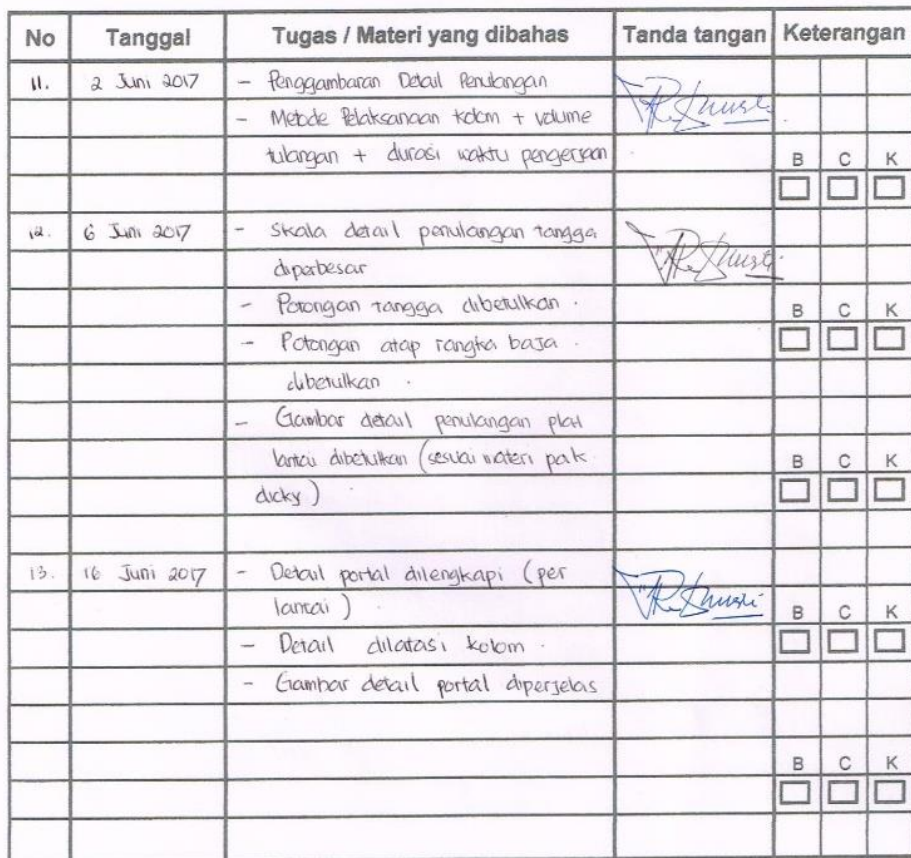 No Tanggal Tugas / Materi yang dibahas Tanda tangan Keterangan
11. 2 Juni 2017 - Penggambaran Detail Penulangan
- Metode Pelaksanaan kolom + volume
tulangan + durasi waktu pengerjaan
B C K
12. 6 Juni 2017 - Skala detail penulangan tangga
diperbesar
- Potongan tangga dibetulkan.
B C K
- Potongan atap rangka baja.
dibetulkan.
- Gambar detail penulangan plat
lantai dibetulkan (sesuai materi pak
B C K
dicky)
13. 16 Juni 2017 - Detail portal dilengkapi (per
lantai).
B C K
- Detail dilatasi kolom.
- Gambar detail portal diperjelas
B C K